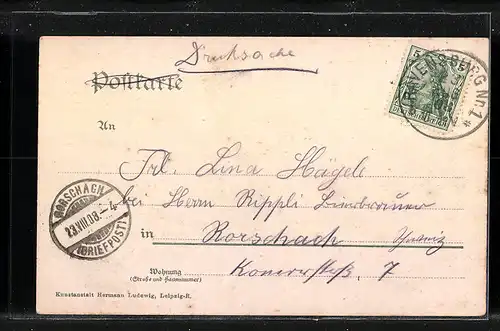 Drucksache
Postkarte
RAVENSBURG Nr. 1 *
An
Frl. Lina Hägele
bei Herrn Rippli
in Rorschach Schweiz
RORSCHACH
23.VIII.08.-4
(BRIEFPOST)
7
Wohnung
(Straße und Hausnummer)
Kunstanstalt Hermann Ludewig, Leipzig-R.